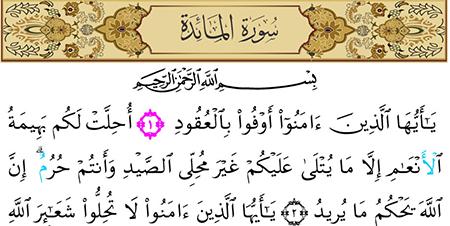 سُورَةُ المَائدَة
بِسْمِ اللَّهِ الرَّحْمَٰنِ الرَّحِيمِ
يَٰٓأَيُّهَا ٱلَّذِينَ ءَامَنُوٓا۟ أَوْفُوا۟ بِٱلْعُقُودِ ﴿١﴾ أُحِلَّتْ لَكُم بَهِيمَةُ
ٱلْأَنْعَٰمِ إِلَّا مَا يُتْلَىٰ عَلَيْكُمْ غَيْرَ مُحِلِّى ٱلصَّيْدِ وَأَنتُمْ حُرُمٌ ۗ إِنَّ
ٱللَّهَ يَحْكُمُ مَا يُرِيدُ ﴿٢﴾ يَٰٓأَيُّهَا ٱلَّذِينَ ءَامَنُوا۟ لَا تُحِلُّوا۟ شَعَٰٓئِرَ ٱللَّهِ